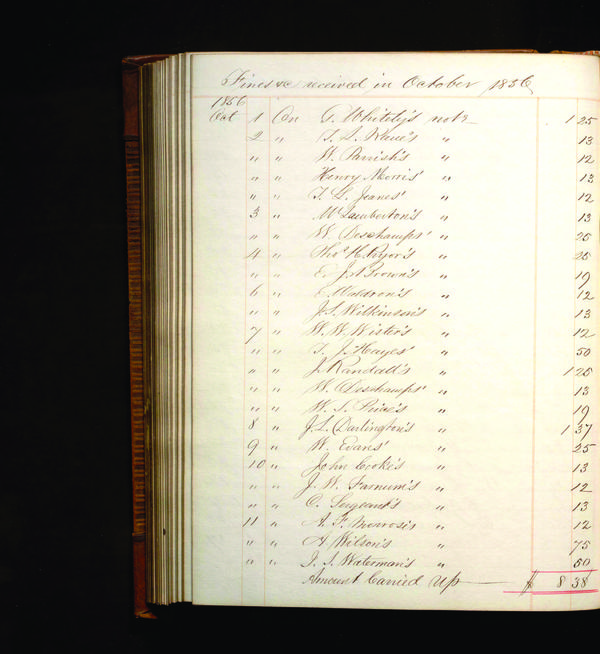 Fines &c received in October 1856
1856
Oct 1 On T. Whitely's note 1 25
2 " T. S. " 13
" " W. Parrish's " 12
" " Henry Morris' " 13
" " T. L. Jeanes' " 12
3 " McLamberton's " 13
" " W. Deschamps' " 25
4 " Thos H. Pryor's " 25
" " E. J. A Brown's " 19
6 " E. Waldron's " 12
" " J. S. Wilkinson's " 13
7 " W. W. Wister's " 12
" " T. J. Hayes' " 50
" " J. Randall's " 1 25
" " W. Deschamps' " 13
" " W. S. Price's " 19
8 " J. L. Darlington's " 1 37
9 " W. Evans' " 25
10 " John Cooke's " 13
" " J. W. Farnum's " 12
" " C. Sergeant's " 13
11 " A. F. Monrosi's " 12
" " A. Wilson's " 75
" " J. S. Waterman's " 50
Amount Carried Up $ 8 38